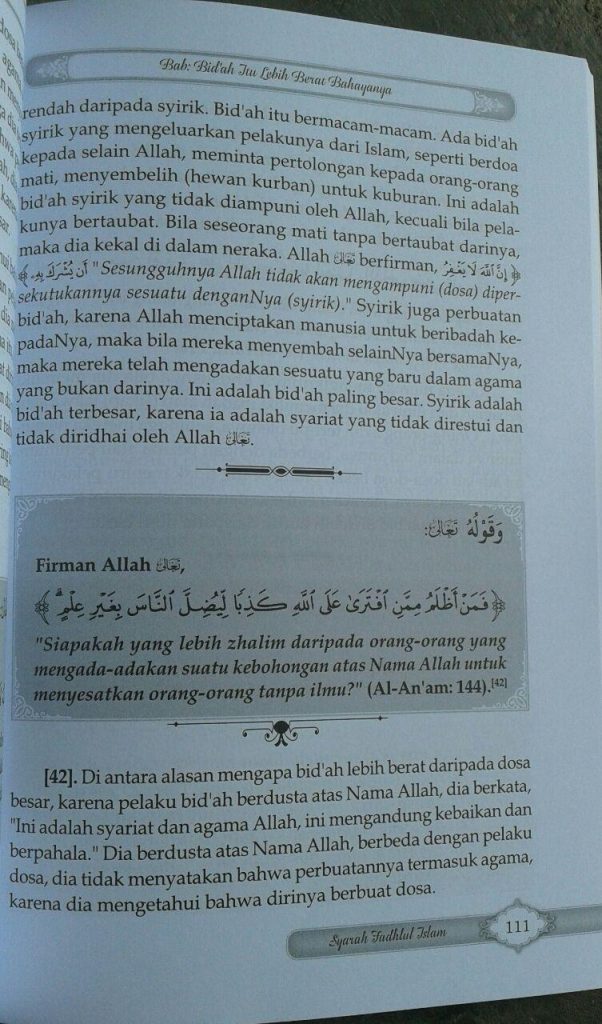 Bab: Bid'ah Itu Lebih Berat Bahayanya
rendah daripada syirik. Bid'ah itu bermacam-macam. Ada bid'ah
syirik yang mengeluarkan pelakunya dari Islam, seperti berdoa
kepada selain Allah, meminta pertolongan kepada orang-orang
mati, menyembelih (hewan kurban) untuk kuburan. Ini adalah
bid'ah syirik yang tidak diampuni oleh Allah, kecuali bila pela-
kunya bertaubat. Bila seseorang mati tanpa bertaubat darinya,
maka dia kekal di dalam neraka. Allah تَعَالَى berfirman, ﴿ إِنَّ اللَّهَ لَا يَغْفِرُ
أَن يُشْرَكَ بِهِ ﴾ "Sesungguhnya Allah tidak akan mengampuni (dosa) diper-
sekutukannya sesuatu denganNya (syirik)." Syirik juga perbuatan
bid'ah, karena Allah menciptakan manusia untuk beribadah ke-
padaNya, maka bila mereka menyembah selainNya bersamaNya,
maka mereka telah mengadakan sesuatu yang baru dalam agama
yang bukan darinya. Ini adalah bid'ah paling besar. Syirik adalah
bid'ah terbesar, karena ia adalah syariat yang tidak direstui dan
tidak diridhai oleh Allah تَعَالَى.
وَقَوْلُهُ تَعَالَى:
Firman Allah تَعَالَى,
﴿ فَمَنْ أَظْلَمُ مِمَّنِ افْتَرَىٰ عَلَى اللَّهِ كَذِبًا لِيُضِلَّ النَّاسَ بِغَيْرِ عِلْمٍ ۗ ﴾
"Siapakah yang lebih zhalim daripada orang-orang yang
mengada-adakan suatu kebohongan atas Nama Allah untuk
menyesatkan orang-orang tanpa ilmu?" (Al-An'am: 144).[42]
[42]. Di antara alasan mengapa bid'ah lebih berat daripada dosa
besar, karena pelaku bid'ah berdusta atas Nama Allah, dia berkata,
"Ini adalah syariat dan agama Allah, ini mengandung kebaikan dan
berpahala." Dia berdusta atas Nama Allah, berbeda dengan pelaku
dosa, dia tidak menyatakan bahwa perbuatannya termasuk agama,
karena dia mengetahui bahwa dirinya berbuat dosa.
Syarah Fadhlul Islam
111